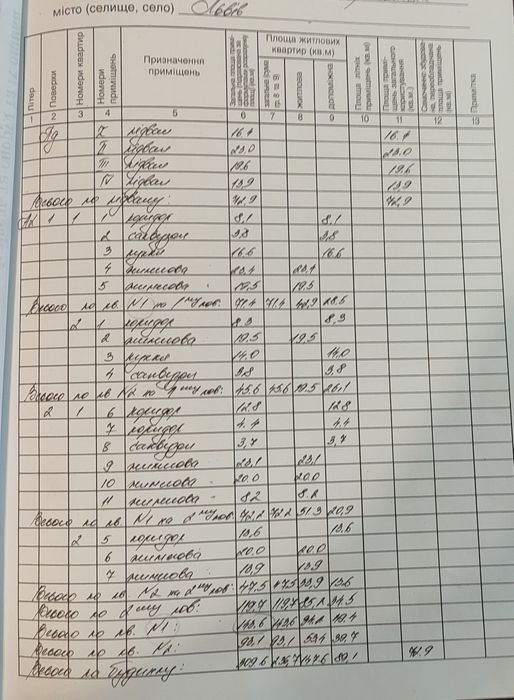 місто (селище, село) Львів
Літер Поверхи Номери квартир Номери приміщень Призначення приміщень Площа житлових квартир (кв.м) житлова допоміжна Примітка
1 2 3 4 5 6 7 8 9 10 11 12 13
Пд I підвал 16.4 16.4
II підвал 23.0 23.0
III підвал 19.6 19.6
IV підвал 13.9 13.9
Всього по підвалу: 72.9 72.9
1 1 1 коридор 8,1 8,1
2 санвузол 3.8 3.8
3 кухня 16.6 16.6
4 житлова 23,4 23,4
5 житлова 19.5 19.5
Всього по кв. N1 на 1му пов. 71.4 71.4 42.9 28.5
2 1 коридор 8.3 8.3
2 житлова 19.5 19.5
3 кухня 14.0 14.0
4 санвузол 3.8 3.8
Всього по кв. N2 на 1му пов: 45.6 45.6 19.5 26.1
2 1 6 коридор 12.8 12.8
7 коридор 4.4 4.4
8 санвузол 3,7 3,7
9 житлова 23,1 23,1
10 житлова 20.0 20.0
11 житлова 8.2 8.2
Всього по кв. N1 на 2му пов: 72.2 72.2 51.3 20,9
2 5 коридор 13.6 13.6
6 житлова 20.0 20.0
7 житлова 13.9 13.9
Всього по кв. N2 на 2му пов: 47.5 47.5 33.9 13.6
Всього по 2му пов: 119.7 119.7 85.2 34.5
Всього по кв. N1: 143.6 143.6 94.2 49.4
Всього по кв. N2: 93,1 93,1 53.4 39,7
Всього по будинку: 309.6 236.7 147.6 89,1 72.9